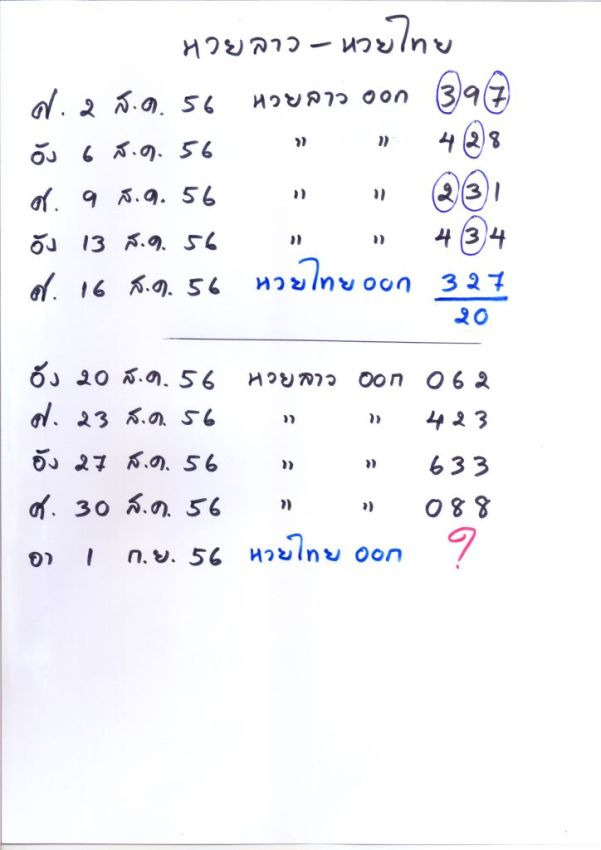 หวยลาว - หวยไทย
ศ. 2 ส.ค. 56 หวยลาว ออก 397
อัง 6 ส.ค. 56 " " 428
ศ. 9 ส.ค. 56 " " 231
อัง 13 ส.ค. 56 " " 434
ศ. 16 ส.ค. 56 หวยไทย ออก 327
20
อัง 20 ส.ค. 56 หวยลาว ออก 062
ศ. 23 ส.ค. 56 " " 423
อัง 27 ส.ค. 56 " " 633
ศ. 30 ส.ค. 56 " " 088
อา 1 ก.ย. 56 หวยไทย ออก ?